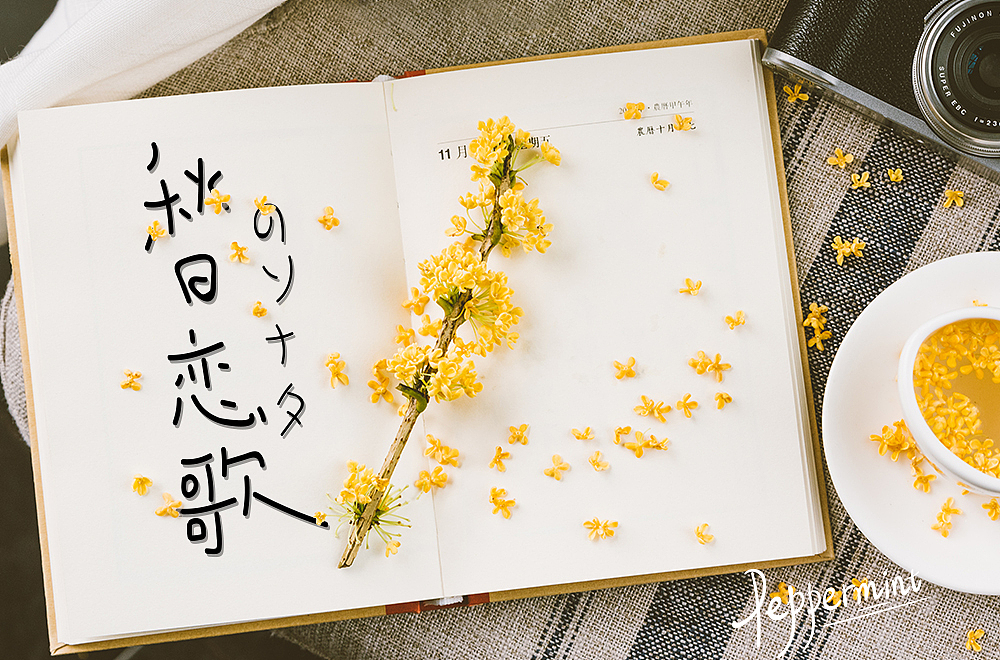 秋日恋歌
のソナタ
農曆甲午年
11月
期五
農曆十月
FUJINON
SUPER EBC f=23
Peppermint